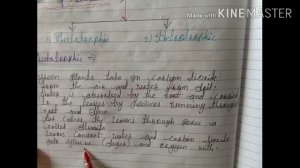 Made with
KINEMASTER
1) Autotrophic 2) Heterotrophic
Autotrophic ⇒
Green plants take in carbon dioxide
from the air and water from soil.
Water is absorbed by the root and carried
to the leaves by tubes running through
root and stem.
enters the leaves through pores
called stomata.
leaves convert water and carbon dioxide
into glucose (sugar) and oxygen with